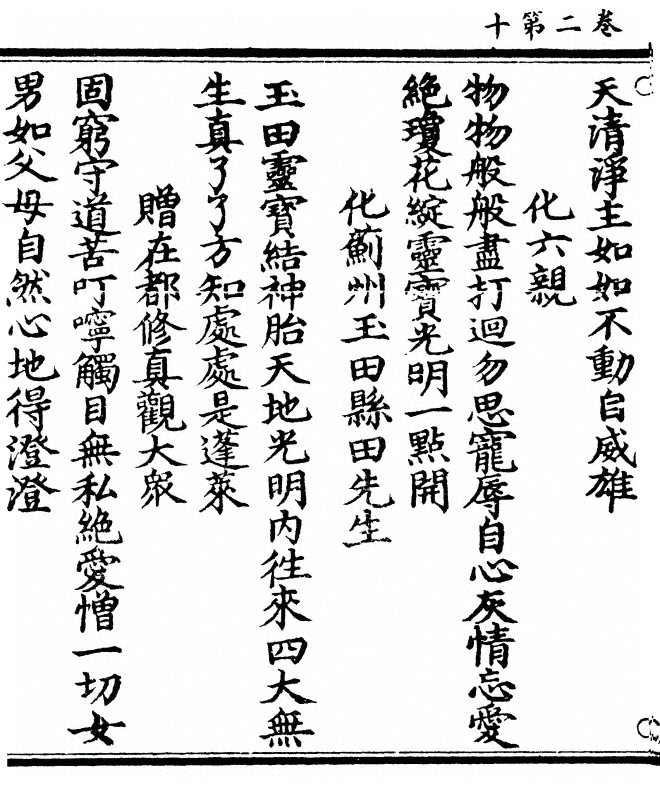 卷二第十
天清淨主如如不動自威雄
化六親
物物般般盡打迴勿思寵辱自心灰情忘愛
絕瓊花綻靈寶光明一點開
化薊州玉田縣田先生
玉田靈寶結神胎天地光明內徃來四大無
生真了了方知處處是蓬萊
贈在都修真觀大衆
固窮守道苦叮嚀觸目無私絶愛憎一切女
男如父母自然心地得澄澄